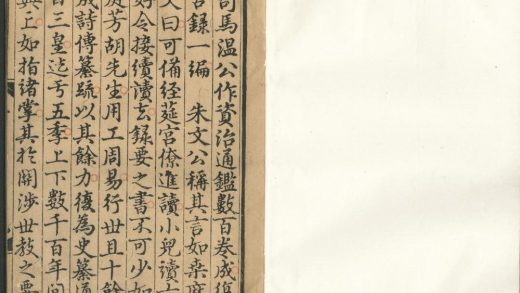 司馬溫公作資治通鑑數百卷成復
古錄一編　朱文公稱其言如桑麻
又曰可備經筵官僚進讀小兒讀六
好令接續讀去錄要之書不可少如
庭芳胡先生用工周易行世且十餘
成詩傳纂疏以其餘力復為史纂通
自三皇迄亏五季上下數千百年間
興亡如指諸掌其於關涉世教之要